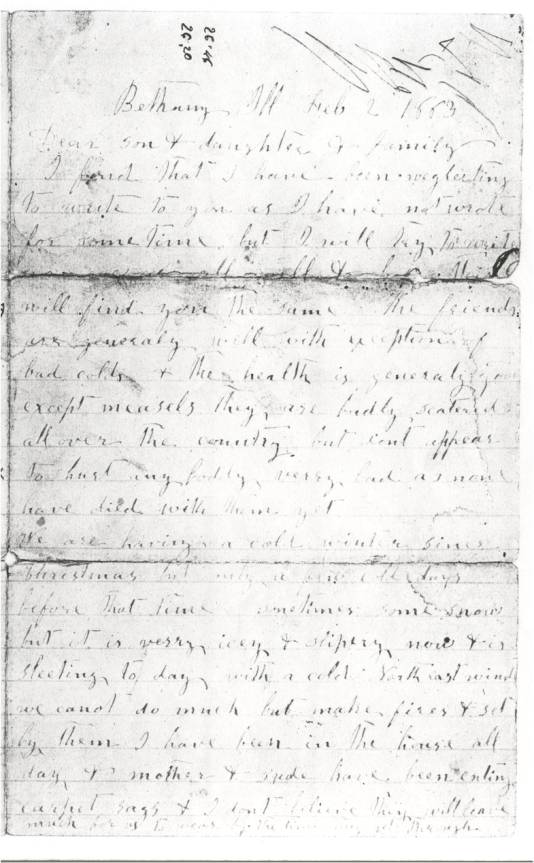 26.46
26.20
Bethany Ill Feb 2 1883
Dear son & daughter & family
I find that I have been neglecting
to write to you as I have not wrote
for some time but I will try to write
all well & hope this
will find you the same the friends
are generaly well with exception of
bad colds & the health is generaly good
except measels they are badly scatered
all over the country but dont appear
to hurt any boddy verry bad as none
have died with them yet
We are having a cold winter since
Christmas but only a few cold days
before that time sometimes some snow
but it is verry icey & slipery now & is
sleeting to day with a cold North east wind
we canot do much but make fires & set
by them I have been in the house all
day & mother & Jude have been cuting
carpet rags & I dont believe they will leave
much for us to wear by the time they get through